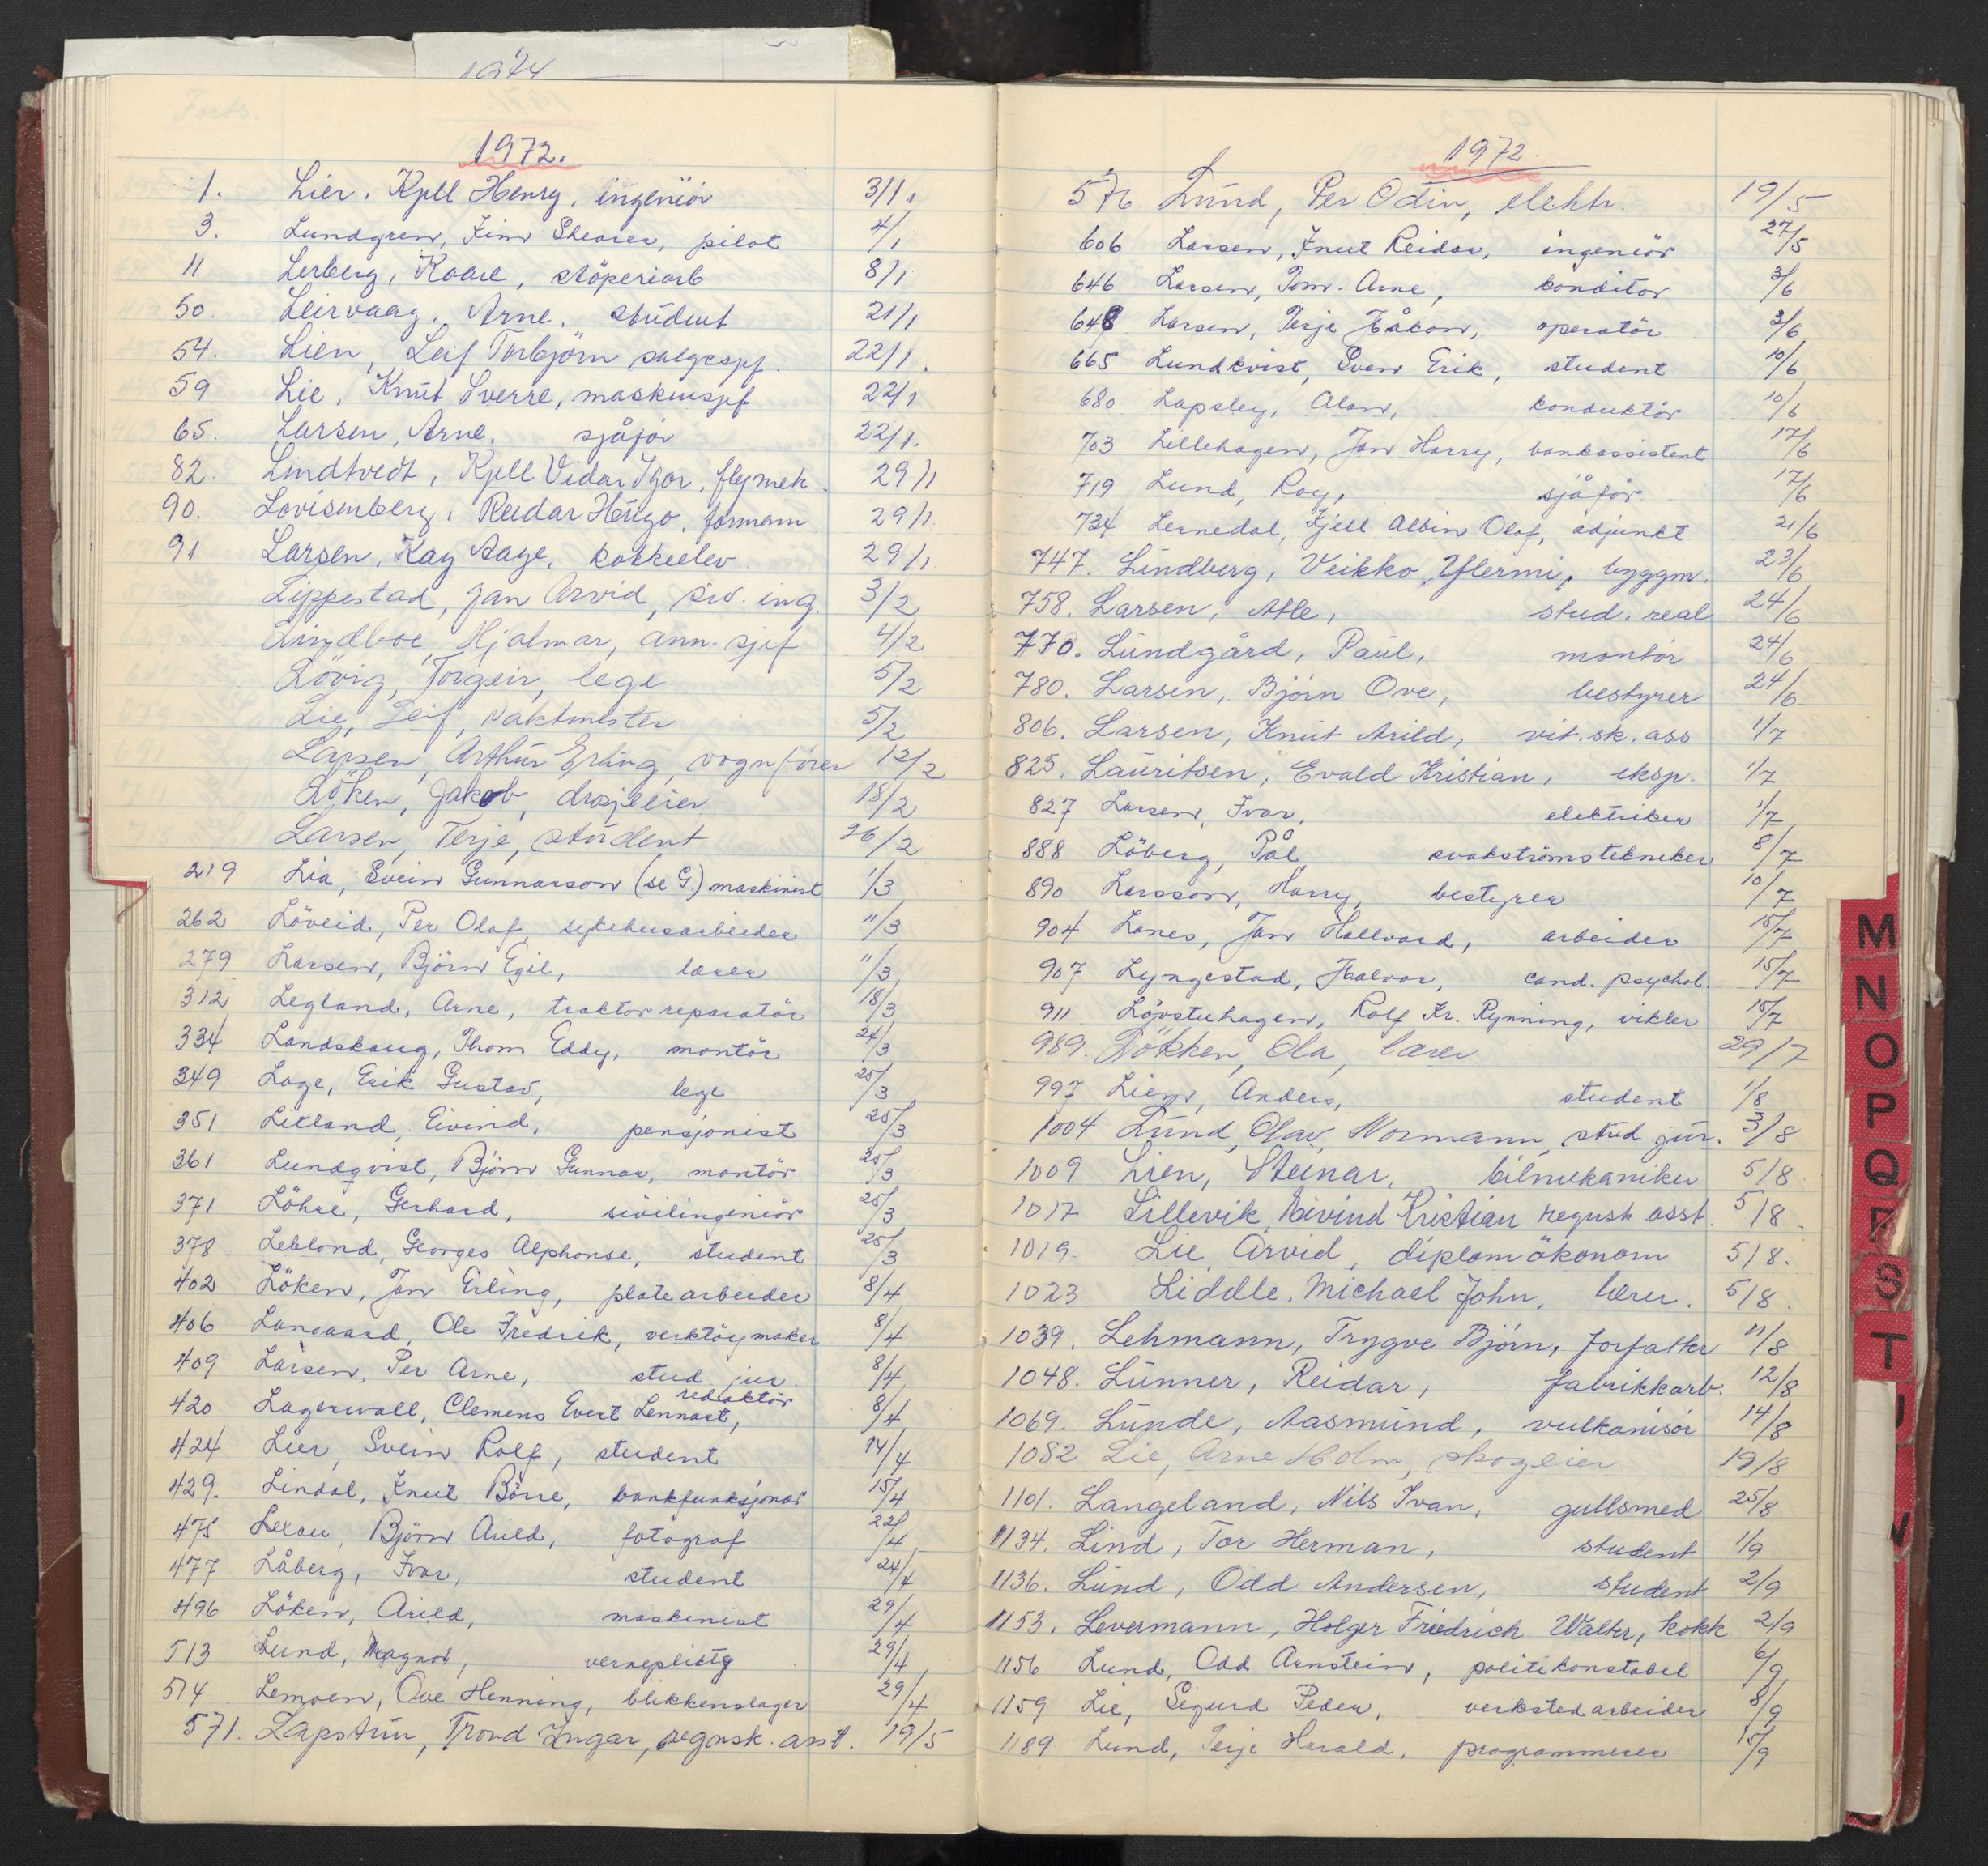 1974
Forts.
1972.
1. Lier, Kjell Henry, ingeniör 3/1.
3. Lundgren, Jim Shearer, pilot 4/1
11 Lerberg, Kaare, stöperiarb 8/1
50. Leirvaag, Arne, student 21/1
54. Lien, Leif Torbjörn salgssjef. 22/1.
59 Lie, Knut Sverre, maskinsjef 22/1
65. Larsen, Arne, sjåför 22/1.
82. Lindtvedt, Kjell Vidar Igor, flymek. 29/1
90. Lovisenberg, Reidar Hugo, formann 29/1.
91 Larsen, Kay Aage, kokkelev 29/1.
Lippestad, Jan Arvid, siv. ing. 3/2
Lindboe, Hjalmar, ann. sjef 4/2
Lövig, Torgeir, lege 5/2
Lie, Leif, vaktmester 5/2
Larsen, Arthur Erling, vognförer 12/2
Löken, Jakob, drosjeeier 18/2
Larsen, Terje, student 26/2
219 Lia, Svein Gunnarson (se G.) maskinist 1/3
262 Löveid, Per Olaf, sykehusarbeider 11/3
279 Larsen, Björn Egil, lærer 11/3
312 Legland, Arne, traktorreparatör 18/3
334 Landskaug, Thom Eddy, montör 24/3
349 Lage, Erik Gustav, lege 25/3
351 Litland, Eivind, pensjonist 25/3
361 Lundqvist, Björn Gunnar, montör 25/3
371 Löhre, Gerhard, sivilingeniör 25/3
378 Leblond, Georges Alphonse, student 25/3
402 Löken, Jan Erling, platearbeider 8/4
406 Langaard, Ole Fredrik, verktöymaker 8/4
409 Larsen, Per Arne, stud. jur. 8/4
420 Lagerwall, Clemens Evert Lennart, redaktör 8/4
424 Lier, Svein Rolf, student 14/4
429. Lindal, Knut Börre, bankfunksjonær 15/4
475 Lexau, Björn Arild, fotograf 22/4
477 Låberg, Ivar, student 24/4
496 Löken, Arild, maskinist 29/4
513 Lund, Magnor, vernepliktig 29/4
514 Lemoen, Ove Henning, blikkenslager 29/4
571. Lapstun, Trond Ingar, regnsk. asst. 19/5
1972.
576 Lund, Per Odin, elektr. 19/5
606 Larsen, Knut Reidar, ingeniör 27/5
646 Larsen, Tom Arne, konditor 3/6
648 Larsen, Terje Håkon, operatör 3/6
665 Lundkvist, Sven Erik, student 10/6
680 Lapsley, Alan, konduktör 10/6
703 Lillehagen, Jan Harry, bankassistent 17/6
719 Lund, Roy, sjåför 17/6
734 Lernedal, Kjell Albin Olof, adjunkt 21/6
747. Lundberg, Veikko Ylermi, byggm. 23/6
758. Larsen, Atle, stud. real 24/6
770. Lundgård, Paul, montör 24/6
780. Larsen, Björn Ove, bestyrer 24/6
806. Larsen, Knut Arild, vit. sk. ass 1/7
825. Lauritsen, Evald Kristian, eksp. 1/7
827 Larsen, Ivar, elektriker 1/7
888 Löberg, Pål, svakströmstekniker 8/7
890 Larsson, Harry, bestyrer 10/7
904 Lanes, Jan Hallvard, arbeider 15/7
907 Lyngestad, Halvor, cand. psychol. 15/7
911 Lövstuhagen, Rolf Kr. Rynning, vikler 15/7
989. Lökken, Ola, lærer 29/7
997 Lien, Anders, student 1/8
1004 Lund, Olav Normann, stud. jur. 3/8
1009 Lien, Steinar, bilmekaniker 5/8
1017 Lillevik, Eivind Kristian regnsk. asst. 5/8.
1019. Lie, Arvid, diplomökonom 5/8.
1023 Liddle, Michael John, lærer. 5/8.
1039. Lehmann, Trygve Björn, forfatter 11/8
1048. Lunner, Reidar, fabrikkarb. 12/8
1069. Lunde, Aasmund, vulkanisör 14/8
1082 Lie, Arne Holm, skogeier 19/8
1101. Langeland, Nils Ivan, gullsmed 25/8
1134. Lind, Tor Herman, student 1/9
1136. Lund, Odd Andersen, student 2/9
1153. Levermann, Holger Friedrich Walter, kokk 2/9
1156 Lund, Odd Arnstein, politikonstabel 6/9
1159 Lie, Sigurd Peder, verkstedarbeider 8/9
1189 Lund, Terje Harald, programmerer 15/9
M
N
O
P
Q
S
T